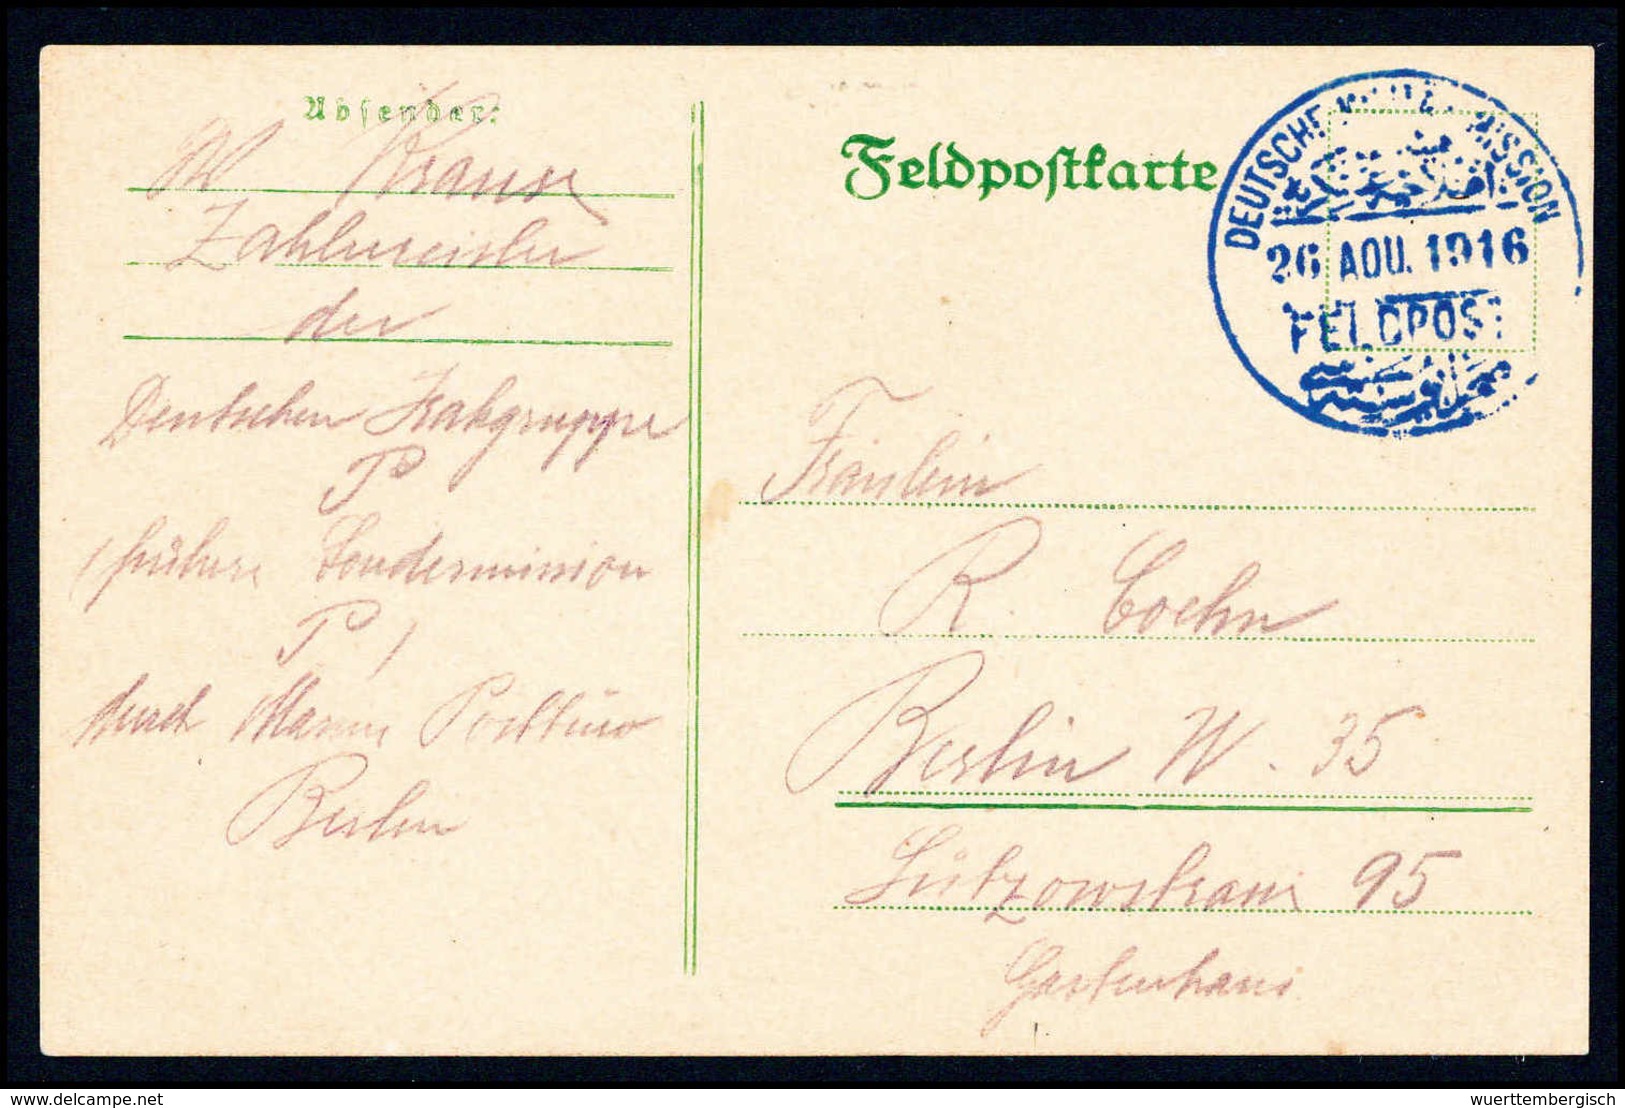 Absender:
W Krause
Zahlmeister
der
Deutschen Irakgruppe
P
(frühere Sondermission
P)
durch Marine Postbüro
Berlin
Feldpostkarte
DEUTSCHE MILITÄR MISSION
26 AOU. 1916
FELDPOST
Fräulein
R. Coehn
Berlin W. 35
Lützowstrasse 95
Gartenhaus
delcampe.net
wuerttembergisch